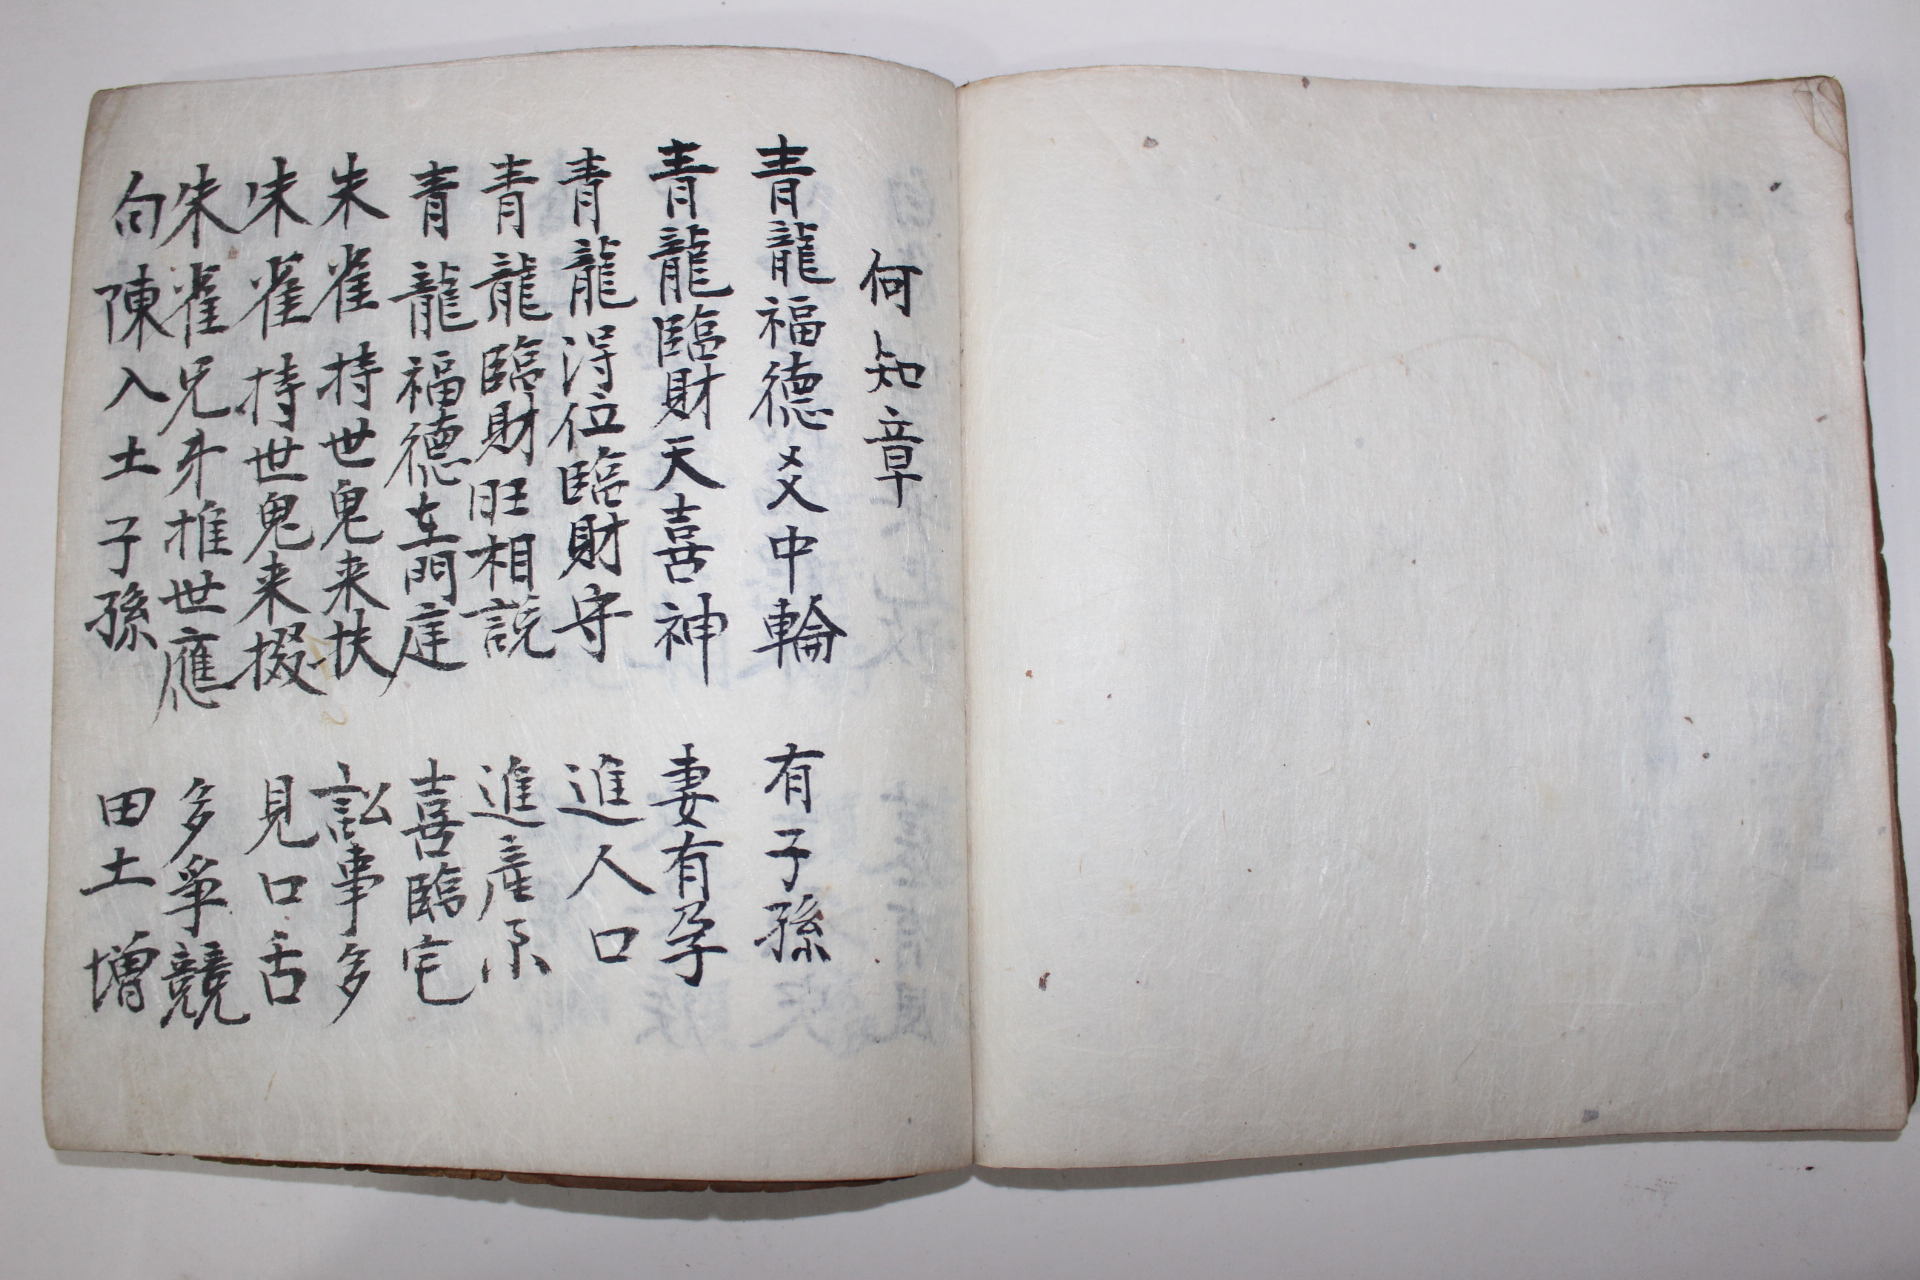 何知章
青龍福德爻中輪 有子孫
青龍臨財天喜神 妻有孕
青龍淂位臨財守 進人口
青龍臨財旺相説 進産
青龍福德在門庭 喜臨宅
朱雀持世鬼来扶 訟事多
朱雀持世鬼来掇 見口舌
朱雀兄弟推世應 多爭競
勾陳入土子孫 田土增